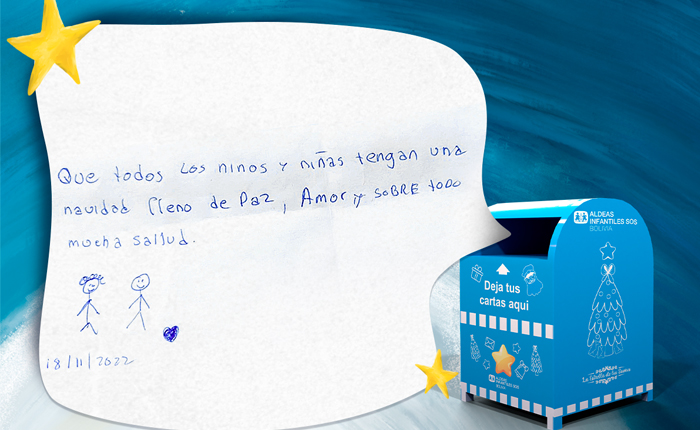 Que todos los ninos y niñas tengan una
navidad lleno de Paz, Amor y SOBRE todo
mucha sallud.
18/11/2022
ALDEAS
INFANTILES SOS
BOLIVIA
Deja tus
cartas aqui
ALDEAS
INFANTILES SOS
BOLIVIA
La Estrella de tus Sueños